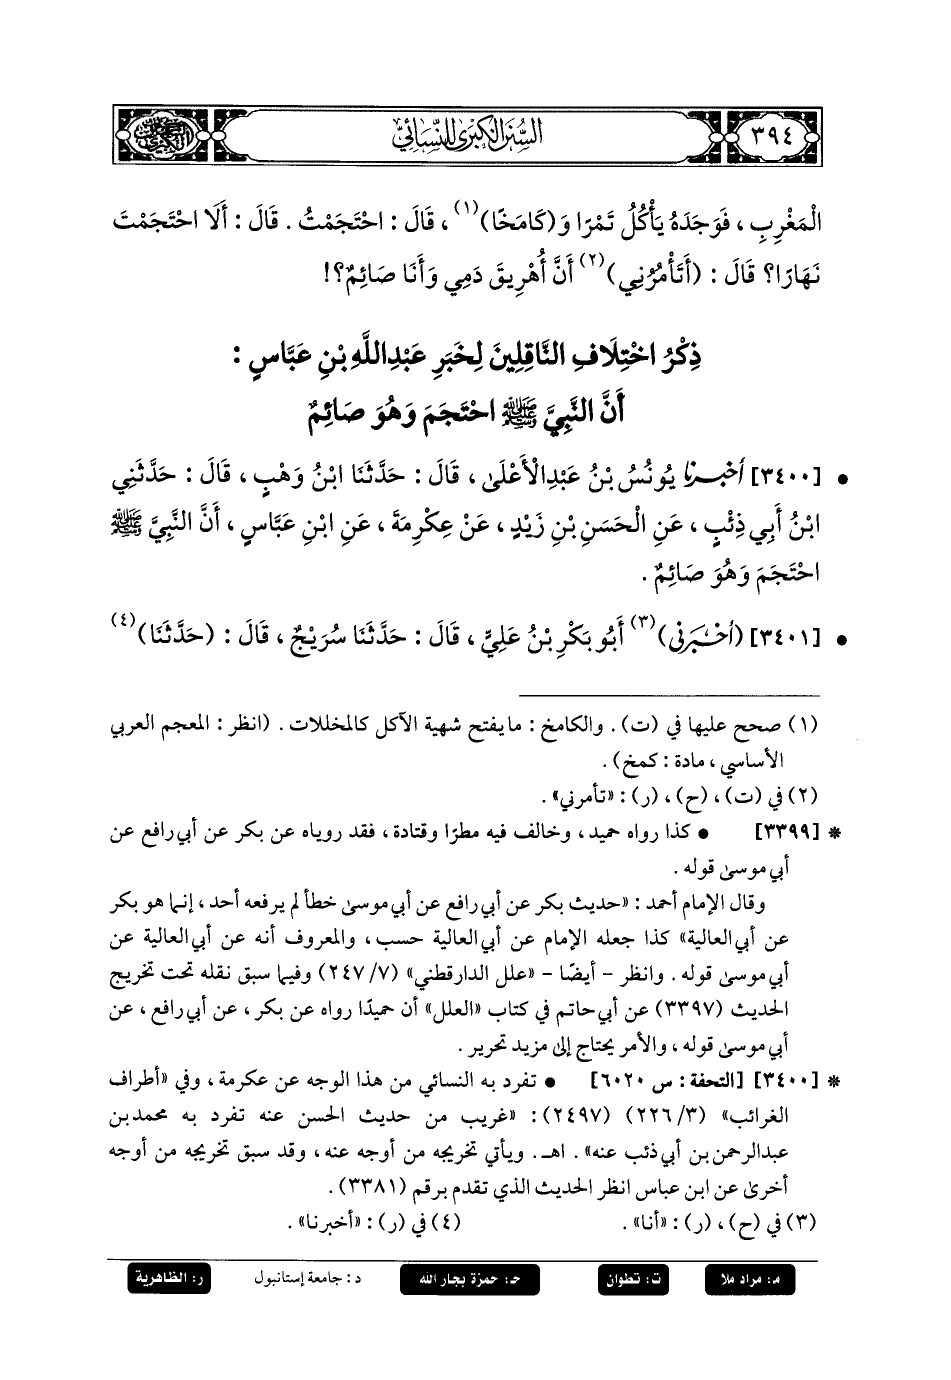 ٣٩٤
السُّنَنُ الْكُبْرَى لِلنَّسَائِيِّ
الْمَغْرِبِ ، فَوَجَدَهُ يَأْكُلُ تَمْرًا وَ(كَامَخًا)(١) ، قَالَ : احْتَجَمْتُ . قَالَ : أَلَا احْتَجَمْتَ
نَهَارًا؟ قَالَ : (أَتَأْمُرُنِي)(٢) أَنْ أُهْرِيقَ دَمِي وَأَنَا صَائِمٌ؟!
ذِكْرُ اخْتِلَافِ النَّاقِلِينَ لِخَبَرِ عَبْدِاللَّهِ بْنِ عَبَّاسٍ :
أَنَّ النَّبِيَّ ﷺ احْتَجَمَ وَهُوَ صَائِمٌ
• [٣٤٠٠] أَخْبَرَنَا يُونُسُ بْنُ عَبْدِالْأَعْلَى ، قَالَ : حَدَّثَنَا ابْنُ وَهْبٍ ، قَالَ : حَدَّثَنِي
ابْنُ أَبِي ذِئْبٍ ، عَنِ الْحَسَنِ بْنِ زَيْدٍ ، عَنْ عِكْرِمَةَ ، عَنِ ابْنِ عَبَّاسٍ ، أَنَّ النَّبِيَّ ﷺ
احْتَجَمَ وَهُوَ صَائِمٌ .
• [٣٤٠١] (أَخْبَرَنِي)(٣) أَبُو بَكْرِ بْنُ عَلِيٍّ ، قَالَ : حَدَّثَنَا سُرَيْجٌ ، قَالَ : (حَدَّثَنَا)(٤)
(١) صحح عليها في (ت) . والكامخ : ما يفتح شهية الآكل كالمخللات . (انظر : المعجم العربي
الأساسي ، مادة : كمخ) .
(٢) في (ت) ، (ح) ، (ر) : «تأمرني» .
* [٣٣٩٩] • كذا رواه حميد ، وخالف فيه مطرًا وقتادة ، فقد روياه عن بكر عن أبي رافع عن
أبي موسى قوله .
وقال الإمام أحمد : «حديث بكر عن أبي رافع عن أبي موسى خطأ لم يرفعه أحد ، إنما هو بكر
عن أبي العالية» كذا جعله الإمام عن أبي العالية حسب ، والمعروف أنه عن أبي العالية عن
أبي موسى قوله . وانظر - أيضًا - «علل الدارقطني» (٧/ ٢٤٧) وفيما سبق نقله تحت تخريج
الحديث (٣٣٩٧) عن أبي حاتم في كتاب «العلل» أن حميدًا رواه عن بكر ، عن أبي رافع ، عن
أبي موسى قوله ، والأمر يحتاج إلى مزيد تحرير .
* [٣٤٠٠] [التحفة : س ٦٠٢٠] • تفرد به النسائي من هذا الوجه عن عكرمة ، وفي «أطراف
الغرائب» (٣/ ٢٢٦) (٢٤٩٧) : «غريب من حديث الحسن عنه تفرد به محمد بن
عبدالرحمن بن أبي ذئب عنه» . اهـ . ويأتي تخريجه من أوجه عنه ، وقد سبق تخريجه من أوجه
أخرى عن ابن عباس انظر الحديث الذي تقدم برقم (٣٣٨١) .
(٣) في (ح) ، (ر) : «أنا» . (٤) في (ر) : «أخبرنا» .
م: مراد ملا ت: تطوان حـ: حمزة بجار الله د: جامعة إستانبول ر: الظاهرية